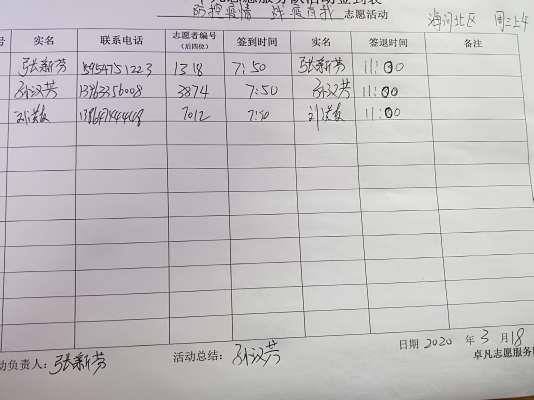 服务队活动签到表
防控疫情 战疫有我 志愿活动 海河北区 周三上午
号 实名 联系电话 志愿者编号(后四位) 签到时间 实名 签退时间 备注
张新芳 1318 7:50 张新芳 11:00
孙汉芳 13963356008 3874 7:50 孙汉芳 11:00
7012 11:00
动负责人: 张新芳 活动总结: 孙汉芳 日期 2020 年 3 月 18
卓凡志愿服务